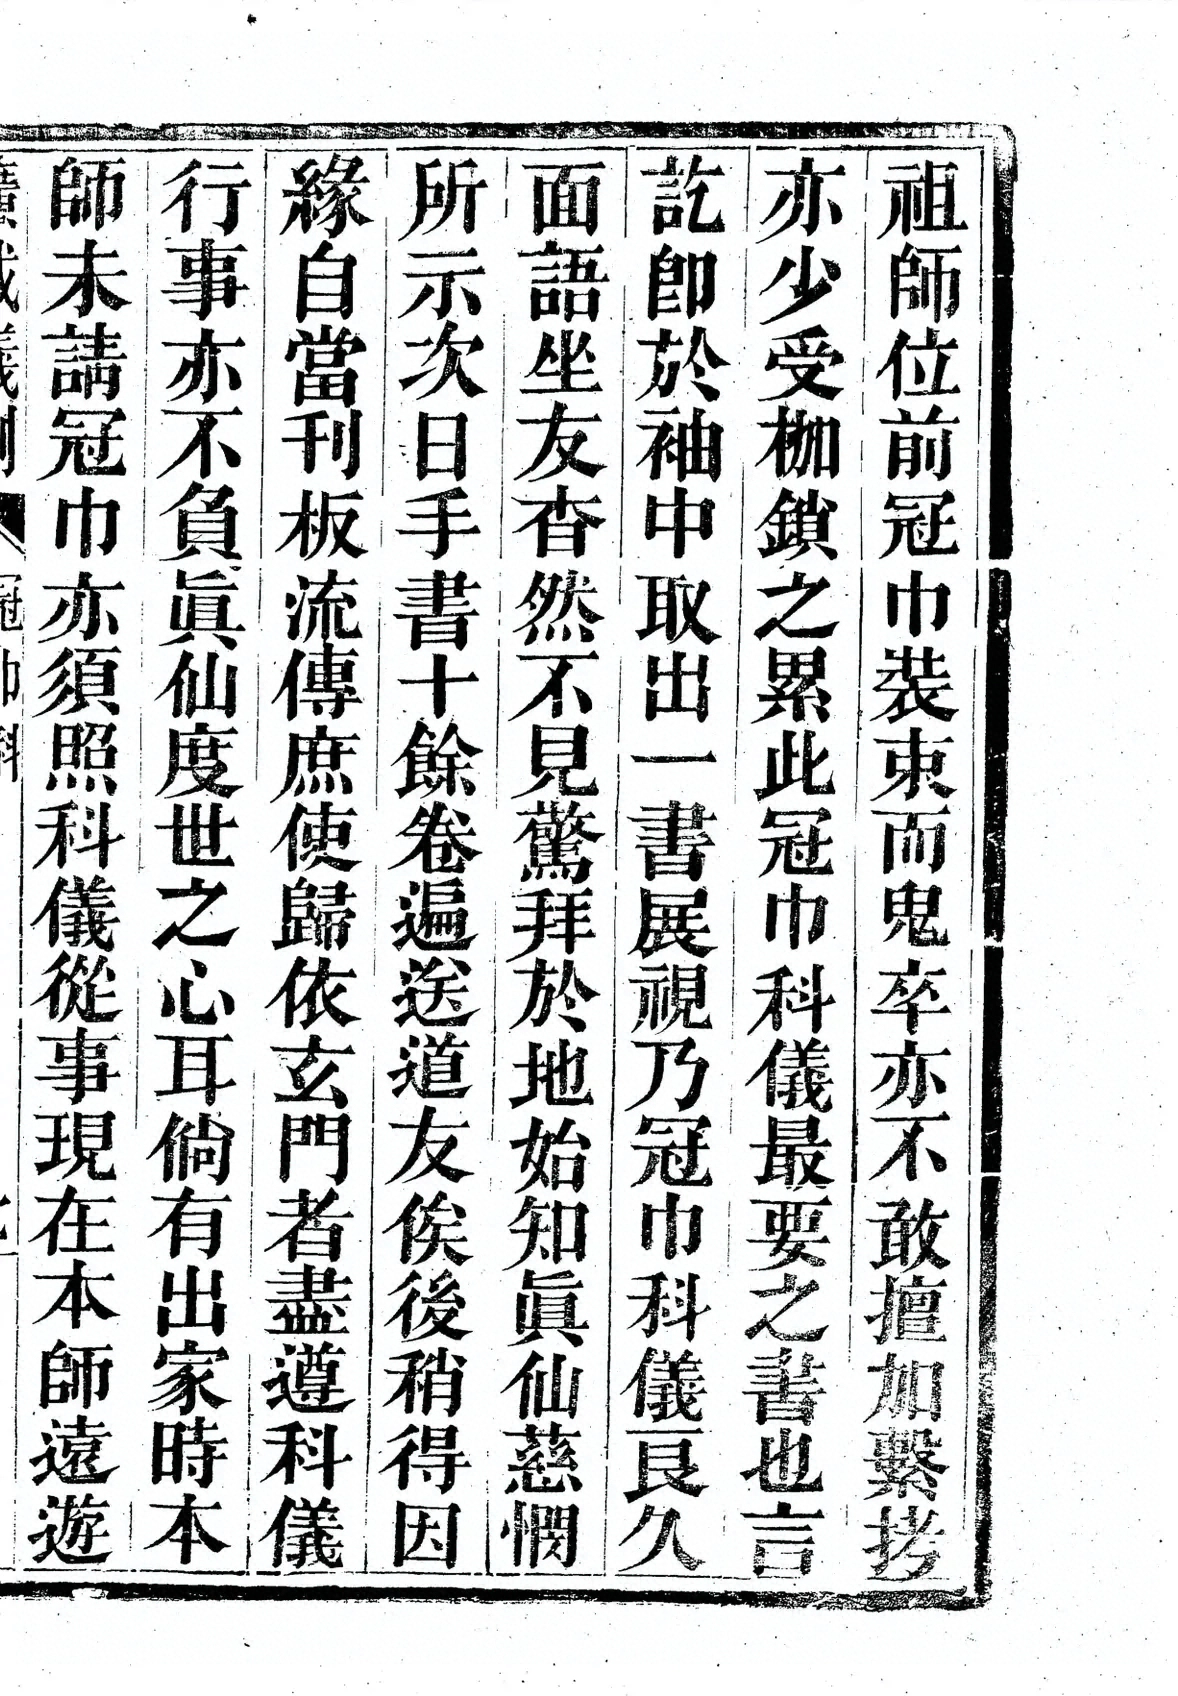 祖師位前冠巾裝束而鬼卒亦不敢擅加繫拷
亦少受枷鎖之累此冠巾科儀最要之書也言
訖卽於袖中取出一書展視乃冠巾科儀良久
面語坐友杳然不見驚拜於地始知眞仙慈憫
所示次日手書十餘卷遍送道友俟後稍得因
緣自當刊板流傳庶使歸依玄門者盡遵科儀
行事亦不負眞仙度世之心耳倘有出家時本
師未請冠巾亦須照科儀從事現在本師遠遊